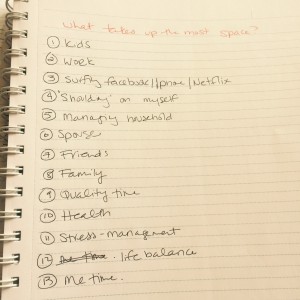 What takes up the most space?
① Kids
② Work
③ Surfing facebook/Iphone/Netflix
④ "Shoulding" on myself
⑤ Managing household
⑥ Spouse
⑦ Friends
⑧ Family
⑨ Quality time
⑩ Health
⑪ Stress-management
⑫ Me Time. life balance
⑬ Me time.